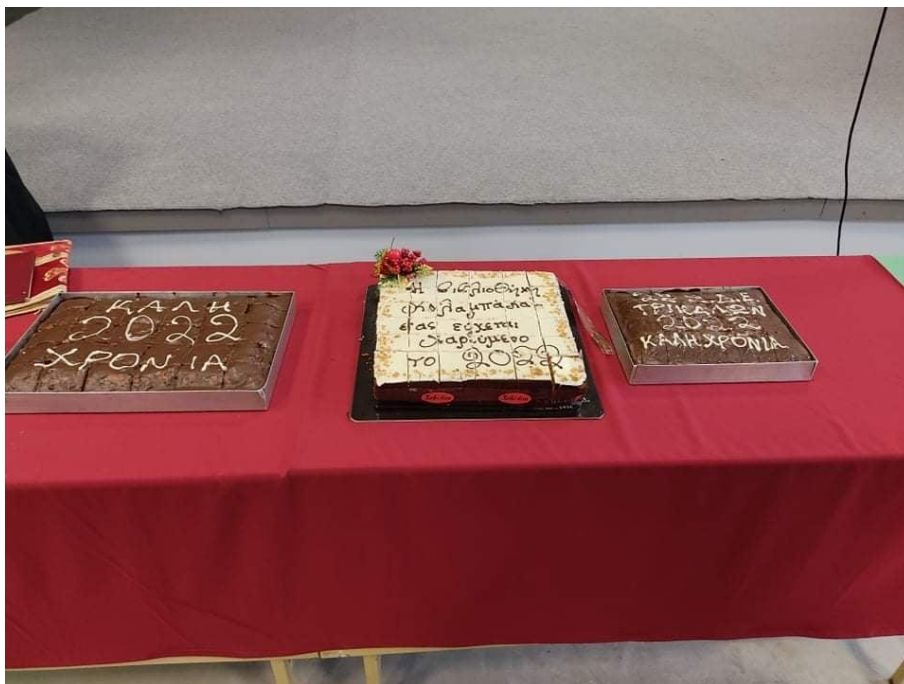 ΚΑΛΗ
2022
ΧΡΟΝΙΑ
Η βιβλιοθήκη
Καλαμπάκα-
σας εύχεται
Χαρούμενο
το 2022
ΤΡΙΚΑΛΩΝ
2022
ΚΑΛΗ ΧΡΟΝΙΑ